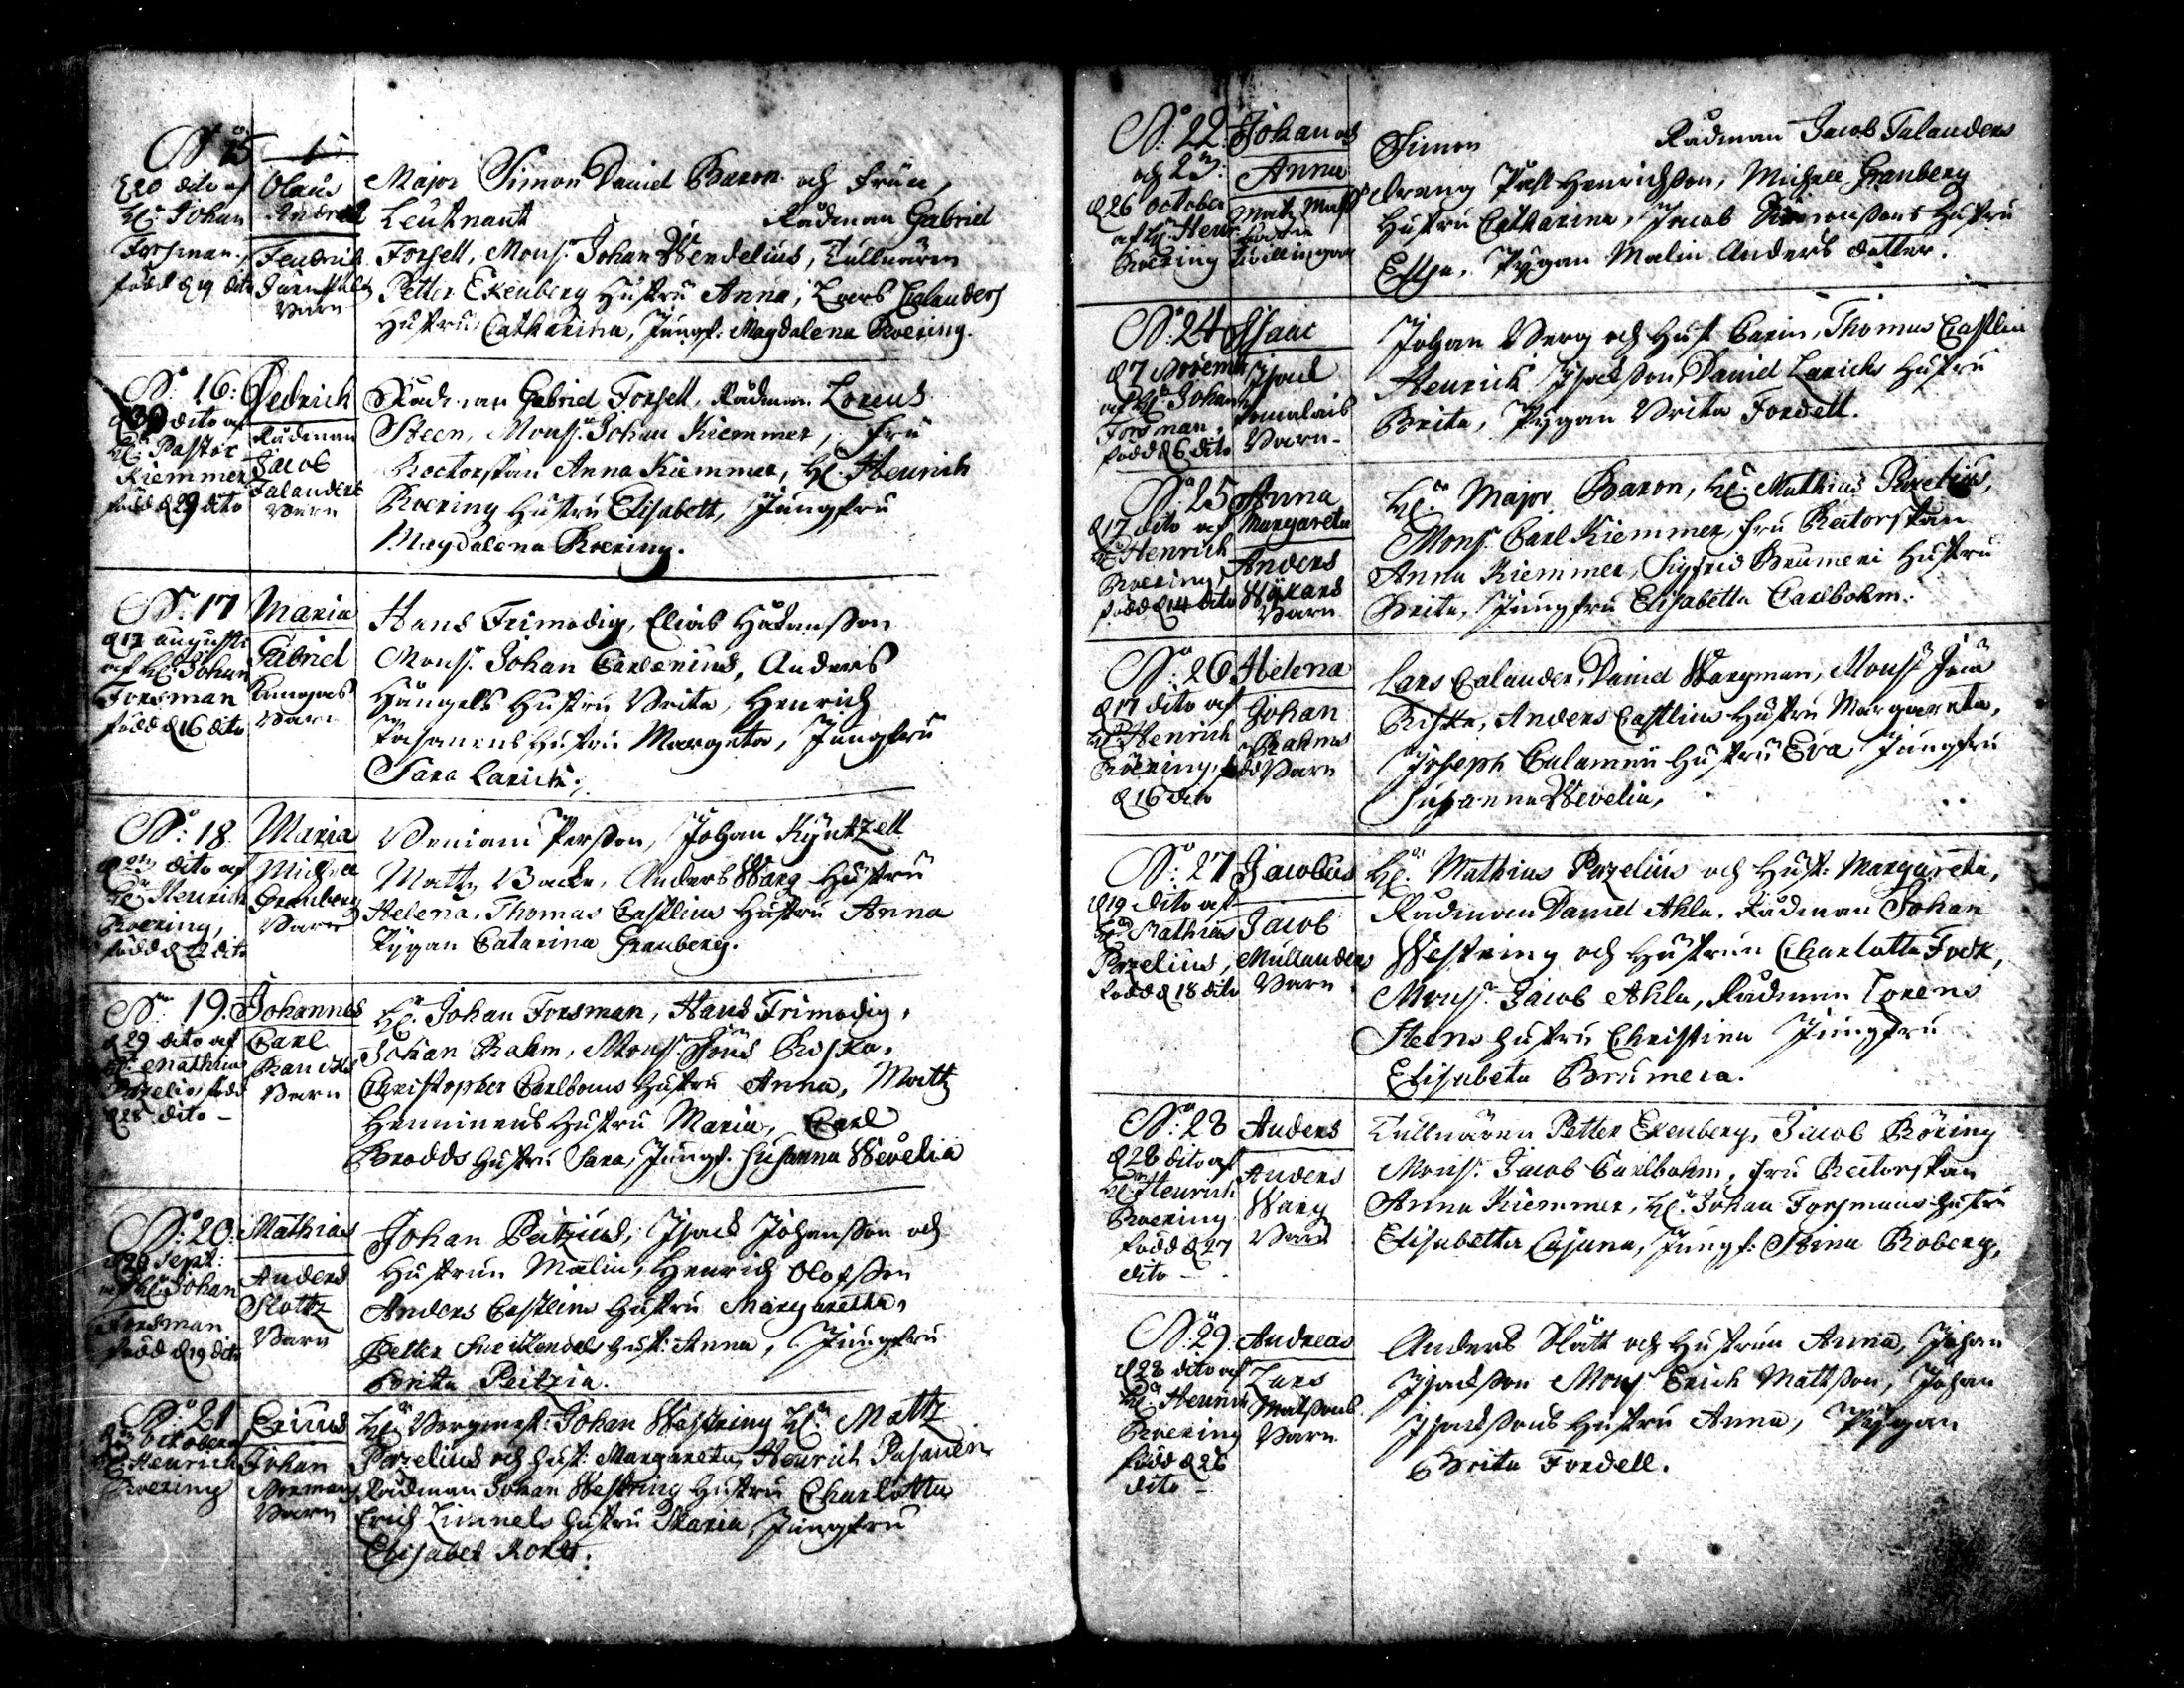 No 15
d 20 dito af
H: Johan
Forsman,
född d 19 dito
Olaus
Andreæ
Fendrich
Barn
Major Simon Daniel Baron och frün,
Leutnant Rådman Gabriel
Forsell, Mons: Johan Wendelius, Tullnären
Petter Ekenberg Hustru Anna, Lars Calanders
Hustru Catharina, Jungf: Magdalena Roering.
No 16:
d 30 dito af
H: Pastor
Kiemmer
född d 29 dito
Dedrich
Rådman
Jacob
Falanders
Barn
Rådman Gabriel Forsell, Rådman Lorens
Steen, Mons: Johan Kiemmer, fru
Rectorskan Anna Kiemmer, H: Henrich
Roering Hustru Elisabett, Jungfru
Magdalena Roering.
No 17
d 17 augusti
af H: Johan
Forsman
född d 16 dito
Maria
Gabriel
Kangas
Barn
Hans Frimodig, Elias Håkansson
Mons: Johan Carlenius, Anders
Hustru Brita, Henrich
Pasanens Hustru Margeta, Jungfru
Sara Larichs.
No: 18
d 23 dito af
H: Henrich
Roering,
född d 22 dito
Maria
Michell
Granberg
Barn
Beniam Persson, Johan Kyntzell
Matts Backe, Anders Warg Hustru
Helena, Thomas Castlins Hustru Anna
Pygan Catarina Granberg.
No 19.
d 29 dito af
H: Mathias
Pazelius född
d 28 dito -
Johannes
Carl
Barn
H: Johan Forsman, Hans Frimodig,
Johan Rahm, Mons: Jöns Riska.
Christopher Carlboms Hustru Anna, Matts
Hemminens Hustru Maria, Carl
Brodds Hustru Sara, Jungf: Susanna Wevelia
No: 20:
d 20 Sept:
af H: Johan
Forsman
född d 19 dito
Mathias
Anders
Slottz
Barn
Johan Peitzius, Isack Johansson och
Hustrun Malin, Henrich Olofsson
Anders Castlins Hustru Margaretha,
Petter Hust: Anna, Jungfru
Brita Peitzia.
No 21
October
H: Henrich
Roering
Ericus
Johan
Normans
Barn
H: Borgmest: Johan Westring H: Mattz
Pazelius och Hust: Margareta, Henrich Pasanen
Rådman Johan Westring Hustru Charlotta
Erich Linnels Hustru Maria, Jungfru
Elisabet
No: 22
och 23:
d 26 October
af H: Henr:
Roering
Johan och
Anna
Matz Mats
Tvillingar
Simon Rådman Jacob Falanders
dreng Påhl Henrichsson, Michell Granberg
Hustru Catharina, Jacob Simonssons Hustru
Pygan Malin Anders dotter.
No: 24
d 7 Novemb
af H: Johan
Forsman,
född d 6 dito
Isaac
Isack
Barn
Johan Berg och Hust Carin, Thomas Castlin
Henrich Isacksson, Daniel Larichs Hustru
Brita, Pygan Brita Fordell.
No: 25
d 17 dito af
H: Henrich
Roering,
född d 14 dito
Anna
Margareta
Anders
Wykars
Barn
H: Major Baron, H: Mathias Pazelius,
Mons: Carl Kiemmer, fru Rectorskan
Anna Kiemmer, Sigfrid Brumeri Hustru
Brita, Jungfru Elisabetta Carlbohm.
No: 26
d 17 dito af
H: Henrich
Roering, född
d 16 dito
Helena
Johan
Rahms
Barn
Lars Calander, Daniel Wargman, Mons: Jöns
Riska, Anders Castlins Hustru Margareta,
Joseph Calamnii Hustru Eva Jungfru
Susanna Wevelia,
No: 27
d 19 dito af
H: Mathias
Pazelius,
född d 18 dito
Jacobus
Jacob
Mullanders
Barn
H: Mathias Pazelius och Hust: Margareta,
Rådman Daniel Ahla, Rådman Johan
Westring och Hustrun Charlotta Fock,
Mons: Jacob Ahla, Rådman Lorens
Steens Hustru Christina Jungfru
Elisabeta Brumera.
No: 28
d 28 dito af
H: Henrich
Roering
född d 27
dito -
Anders
Anders
Warg
Barn
Tullnären Petter Ekenberg, Jacob Röring
Mons: Jacob Carlbohm, fru Rectorskan
Anna Kiemmer, H: Johan Forsmans Hustru
Elisabetta Cajana, Jungf: Stina Roberg.
No: 29.
d 28 dito af
H: Henrich
Roering
född d 26
dito -
Andreas
Lars
Matssons
Barn
Anders Slått och Hustrun Anna, Johan
Isacksson Mons: Erich Mattsson, Johan
Isackssons Hustru Anna, Pygan
Brita Fordell.